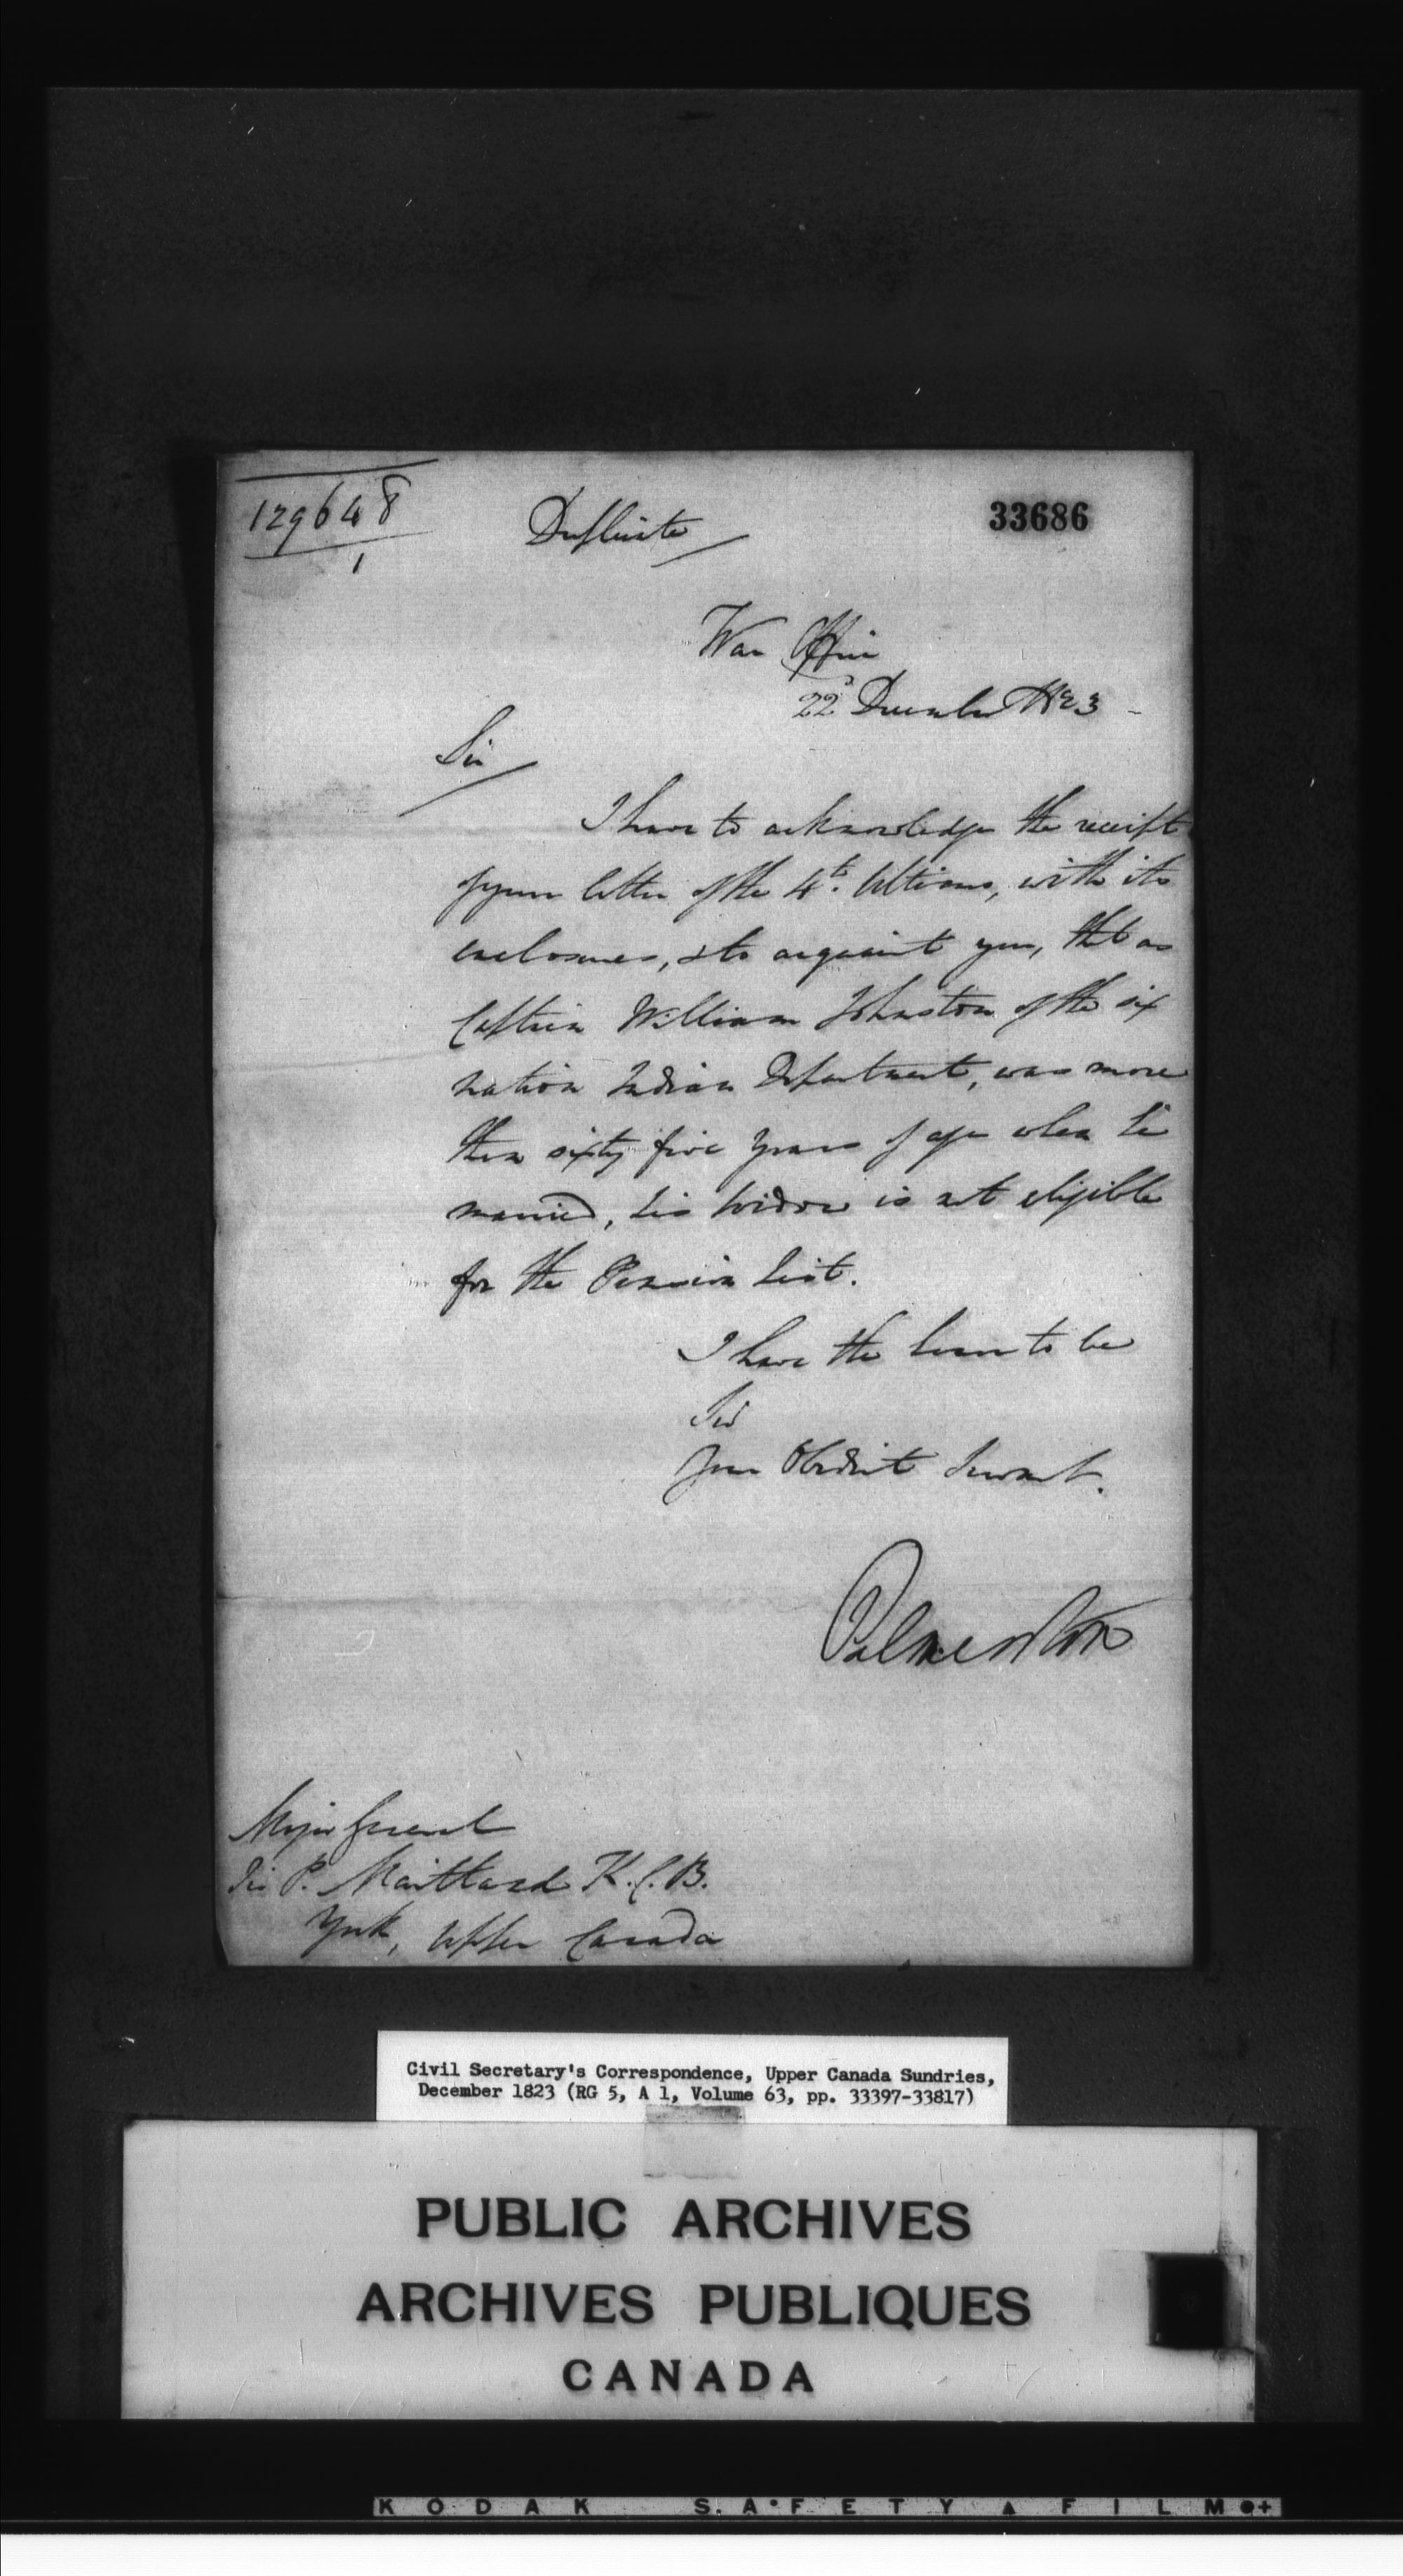 129648
1
Duplicate
33686
War Office
22d December 1823
Sir
I have to acknowledge the receipt
of your letter of the 4th. Ultimo, with its
enclosures, & to acquaint you, that as
Captain William Johnston of the six
nation Indian Department, was more
than sixty five years of age when he
married, his Widow is not eligible
for the Pension List.
I have the honor to be
Sir
Your Obedient Servant.
Palmerston
Major General
Sir P. Maitland K.C.B.
York, Upper Canada
Civil Secretary's Correspondence, Upper Canada Sundries,
December 1823 (RG 5, A 1, Volume 63, pp. 33397-33817)
PUBLIC ARCHIVES
ARCHIVES PUBLIQUES
CANADA
KODAK S.A•FETY ▲ FILM ●+